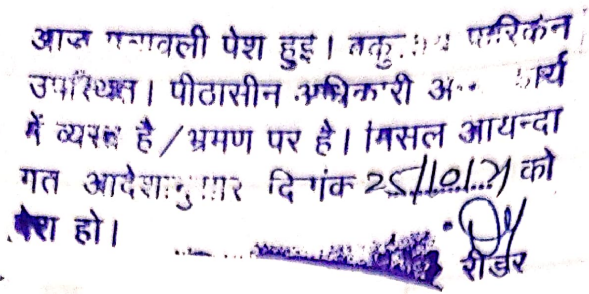 आज पत्रावली पेश हुई। वकुलाय फरिकेन
उपस्थित। पीठासीन अधिकारी अन्य कार्य
में व्यस्त है/भ्रमण पर है। मिसल आयन्दा
गत आदेशानुसार दिनांक 25/10/21 को
पेश हो।
रीडर